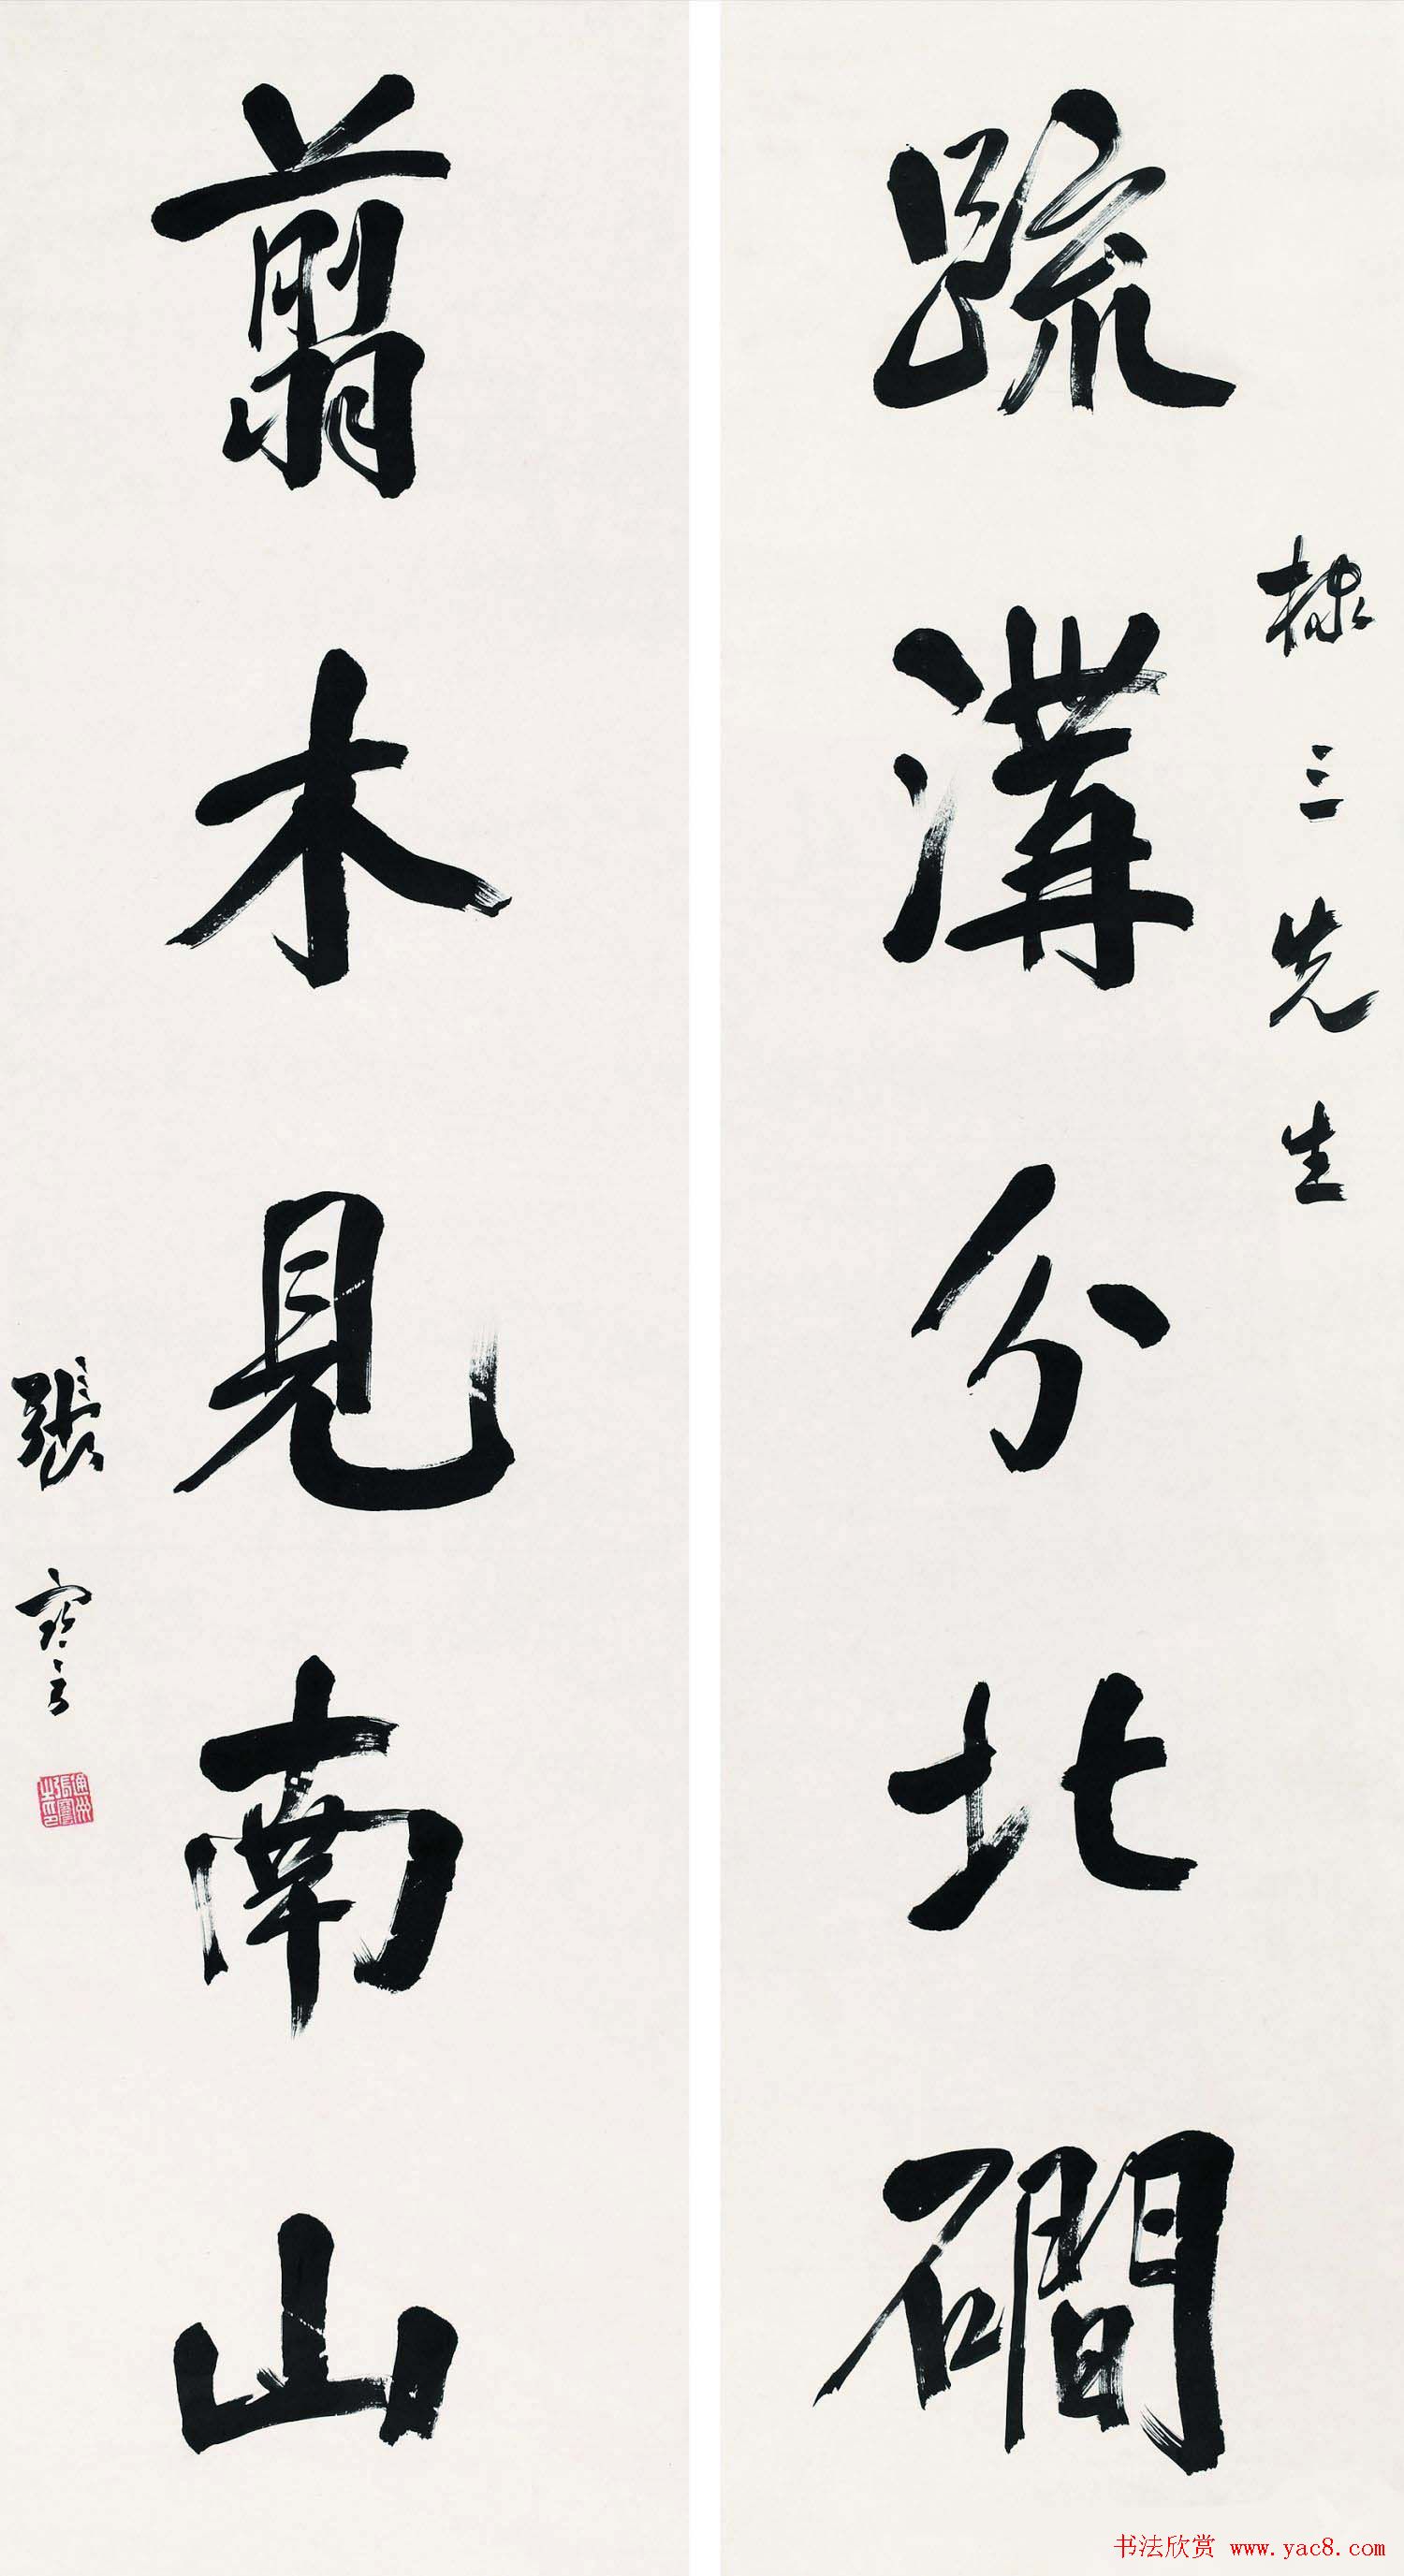 疏溝分北磵
棣三先生
翦木見南山
張寋
書法欣赏 www.yac8.com